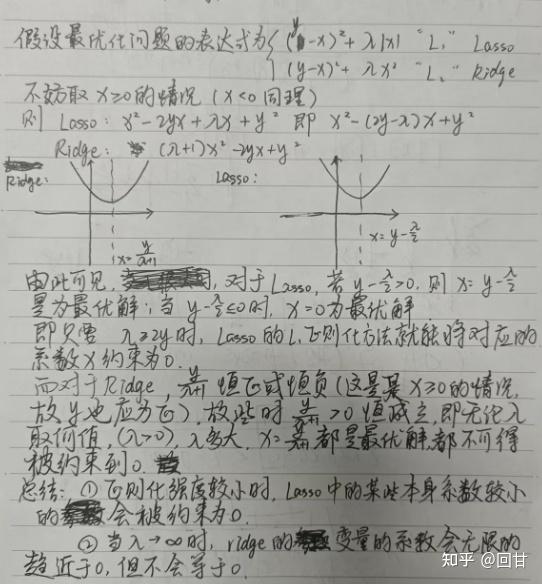 假设最优化问题的表达式为{(y-x)²+λ|x| "L₁" Lasso
(y-x)²+λx² "L₂" Ridge
不妨取 x≥0 的情况 (x<0 同理)
则 Lasso: x²-2yx+λx+y² 即 x²-(2y-λ)x+y²
Ridge: (λ+1)x²-2yx+y²
Ridge: Lasso:
x=y/(λ+1) x=y-λ/2
由此可见, 对于Lasso, 若 y-λ/2>0, 则 x=y-λ/2
是为最优解; 当 y-λ/2≤0时, x=0为最优解
即只要 λ≥2y时, Lasso的L₁正则化方法就能将对应的
系数x约束为0.
而对于Ridge, y/(λ+1) 恒正或恒负(这是某x≥0的情况,
故y也应为正), 故此时 y/(λ+1)>0 恒成立, 即无论λ
取何值, (λ>0), λ多大, x=y/(λ+1) 都是最优解, 都不可得
被约束到0.
总结: ① 正则化强度较小时, Lasso中的某些本身系数较小
的会被约束为0.
② 当λ→∞时, ridge的变量的系数会无限的
趋近于0, 但不会等于0.
知乎 @回甘